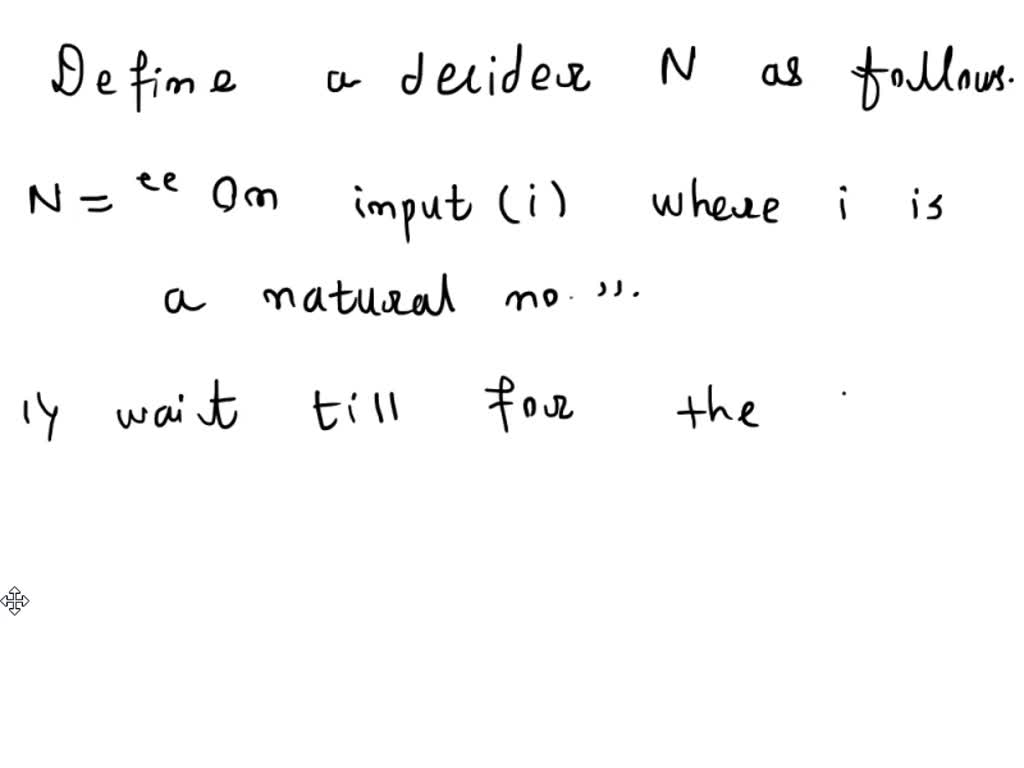 Define a decider N as follows.
N = “ On input (i) where i is
a natural no. ”.
1) wait till for the